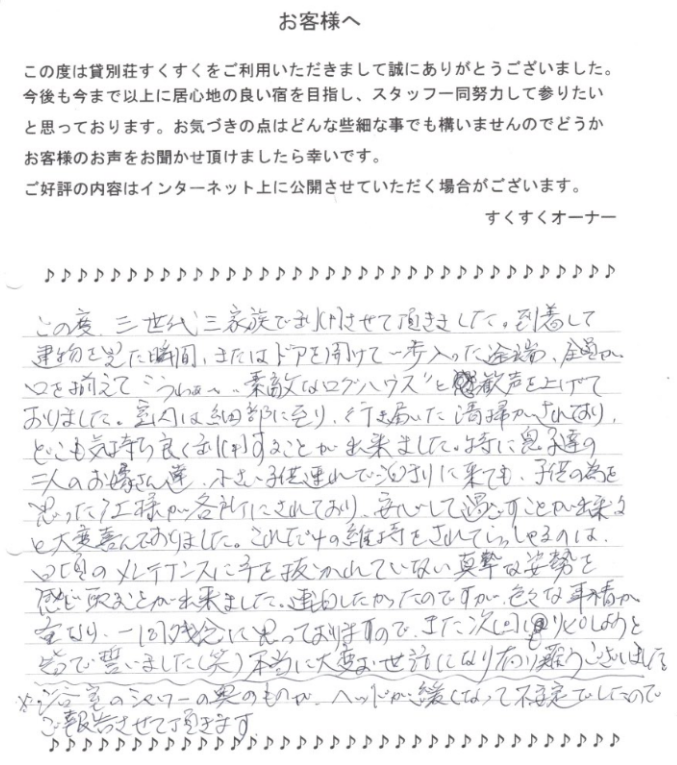 お客様へ
この度は貸別荘すくすくをご利用いただきまして誠にありがとうございました。
今後も今まで以上に居心地の良い宿を目指し、スタッフ一同努力して参りたい
と思っております。お気づきの点はどんな些細な事でも構いませんのでどうか
お客様のお声をお聞かせ頂けましたら幸いです。
ご好評の内容はインターネット上に公開させていただく場合がございます。
すくすくオーナー
♪♪♪♪♪♪♪♪♪♪♪♪♪♪♪♪♪♪♪♪♪♪♪♪♪♪♪♪♪♪♪♪♪♪♪♪♪♪
この度、三世代三家族で利用させて頂きました。到着して
建物を見た瞬間、またはドアを開けて一歩入った途端、全員が
口を揃えて“うわぁ〜素敵なログハウス”と歓声を上げて
おりました。室内は細部に至り、行き届いた清掃がされており、
どこも気持ち良く利用することが出来ました。特に息子達の
二人のお嫁さん達、小さい子供連れで泊りに来ても、子供の為を
思った仕様が各所にされており、安心して過ごすことが出来る
と大変喜んでおりました。これだけの維持をされていらっしゃるのは、
日頃のメンテナンスに手を抜かれていない真摯な姿勢を
感じ取ることが出来ました。連泊したかったのですが、色々な事情が
重なり、一同残念に思っておりますので、また次回もリピしようと
皆で誓いました(笑)本当に大変お世話になり有り難うございました
※浴室のシャワーの奥のものが、ヘッドが緩くなって不安定でしたので
ご報告させて頂きます。
♪♪♪♪♪♪♪♪♪♪♪♪♪♪♪♪♪♪♪♪♪♪♪♪♪♪♪♪♪♪♪♪♪♪♪♪♪♪